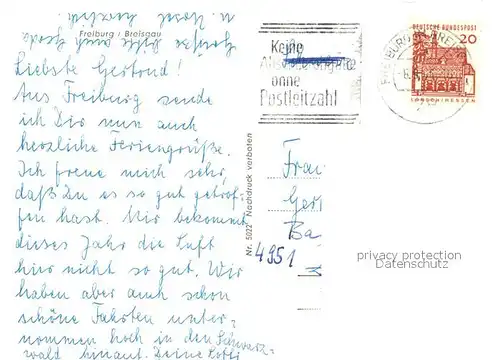 Freiburg i Breisgau
Liebste Gertrud!
Aus Freiburg sende
ich Dir nun auch
herzliche Feriengrüße.
Ich freue mich sehr,
daß Du es so gut getrof-
fen hast. Mir bekommt
dieses Jahr die Luft
hier nicht so gut. Wir
haben aber auch schon
schöne Fahrten unter-
nommen hoch in den Schwarz-
wald hinauf. Deine Lotti
Grüße bitte auch
u. Horst herzlich
Nr. 5022 Nachdruck verboten
Keine
ohne
Postleitzahl
FREIBURG
DEUTSCHE BUNDESPOST
20
LORSCH/HESSEN
Frau
Ger
Ba
4951
privacy protection
Datenschutz